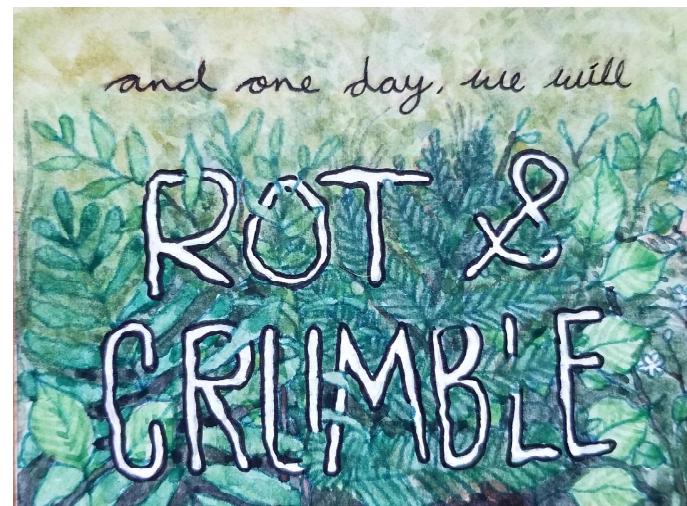 and one day, we will
ROT &
CRUMBLE